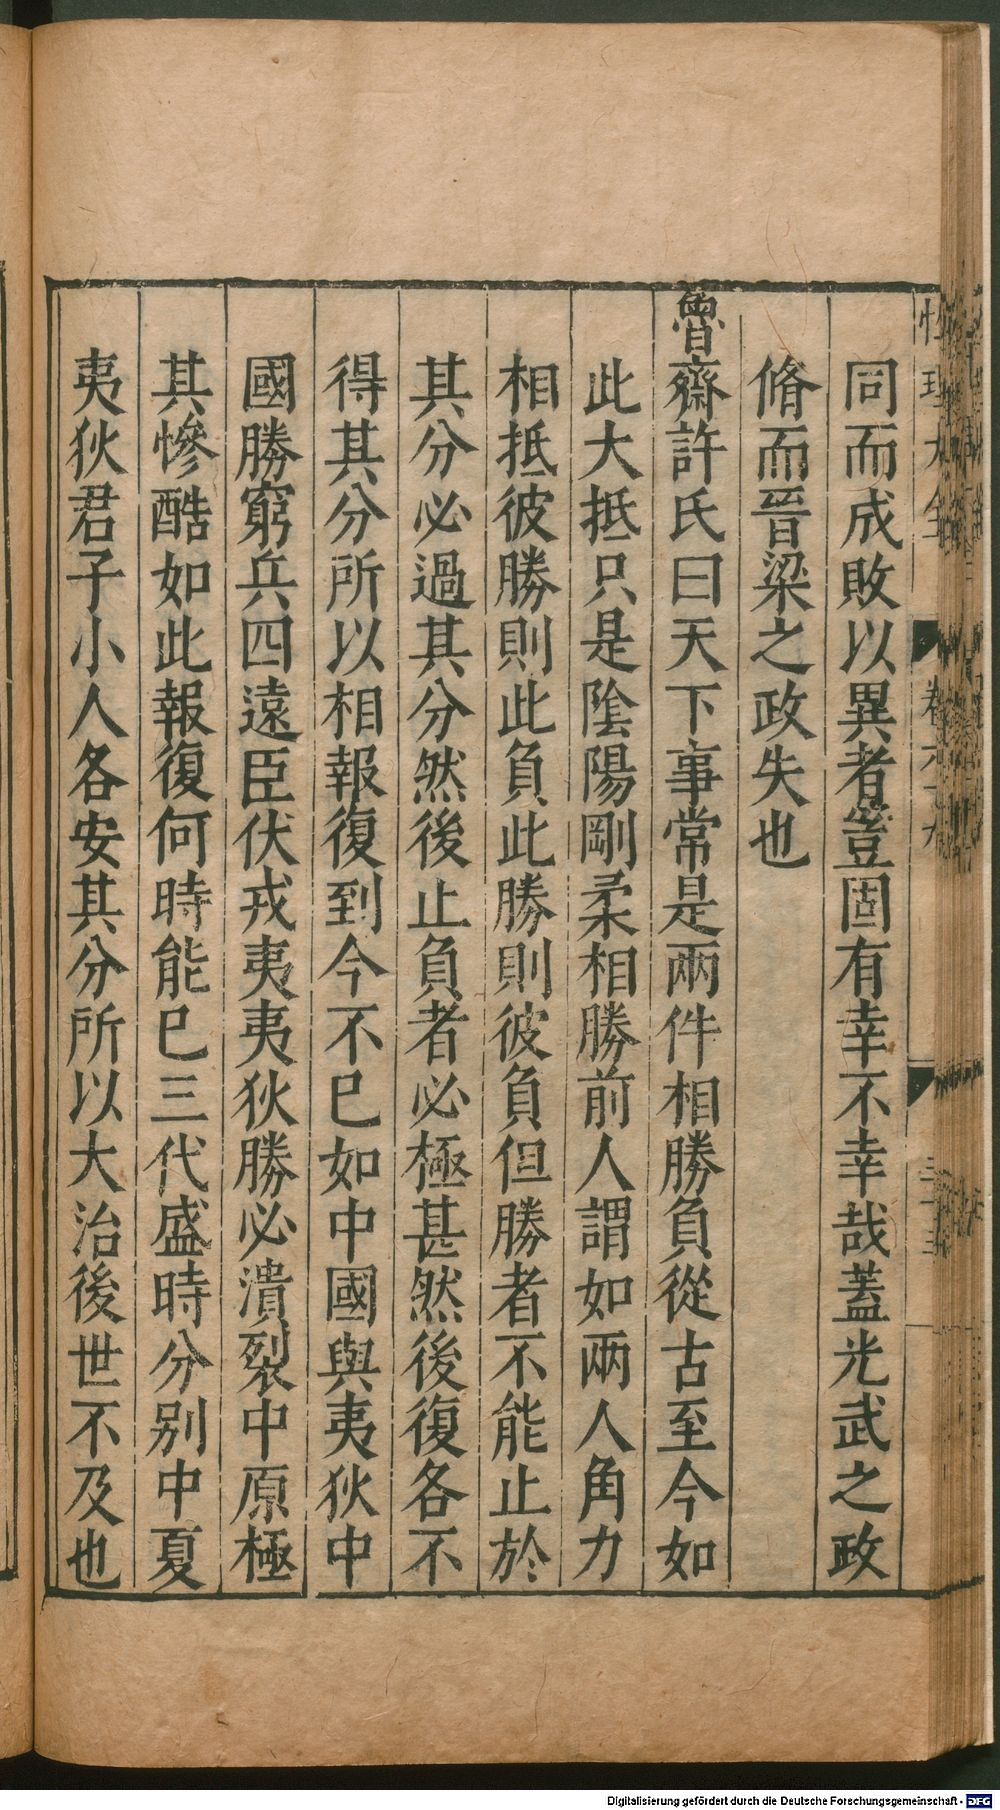 性理大全 卷六十九
同而成敗以異者豈固有幸不幸哉蓋光武之政
脩而晉梁之政失也
魯齋許氏曰天下事常是兩件相勝負從古至今如
此大抵只是陰陽剛柔相勝前人謂如兩人角力
相抵彼勝則此負此勝則彼負但勝者不能止於
其分必過其分然後止負者必極甚然後復各不
得其分所以相報復到今不已如中國與夷狄中
國勝窮兵四遠臣伏戎夷夷狄勝必潰裂中原極
其慘酷如此報復何時能已三代盛時分别中夏
夷狄君子小人各安其分所以大治後世不及也
Digitalisierung gefördert durch die Deutsche Forschungsgemeinschaft - DFG